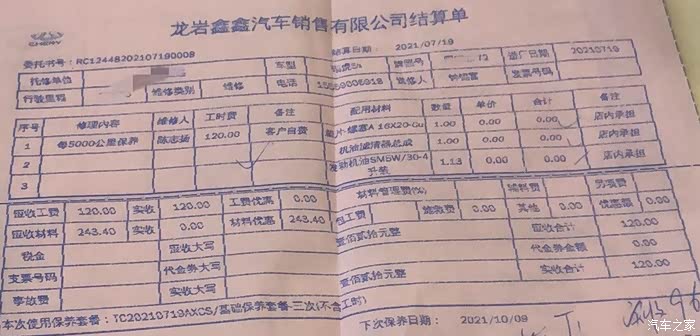 CHERY 龙岩鑫鑫汽车销售有限公司结算单
委托书号：RC12448202107190009 结算日期： 2021/07/19
托修单位 车型 牌照号 进厂日期 20210719
行驶里程 维修类别 维修 电话 送修人 发票号码
序号 修理内容 维修人 工时费 备注 配用材料 数量 单价 合计 备注
1 每5000公里保养 陈志扬 120.00 客户自费 垫片-螺塞A 16X20-Cu 1.00 0.00 0.00 店内承担
2 机油滤清器总成 1.00 0.00 0.00 店内承担
3 发动机油SM5W/30-4升装 1.13 0.00 0.00 店内承担
材料管理费(%) 辅料费 另项费
应收工费 120.00 实收 120.00 工费优惠 0.00 包工费 施救费 0.00 其他 0.00 优惠额 0.00
应收材料 243.40 实收 0.00 材料优惠 243.40 壹佰贰拾元整 应收合计 120.00
税金 应收大写 代金券金额 0.00
支票号码 代金券大写 壹佰贰拾元整 实收合计 120.00
事故费 实收大写
本次使用保养套餐：TC20210719AXCS/基础保养套餐-三次(不含工时)
下次保养日期： 2021/10/09
汽车之家